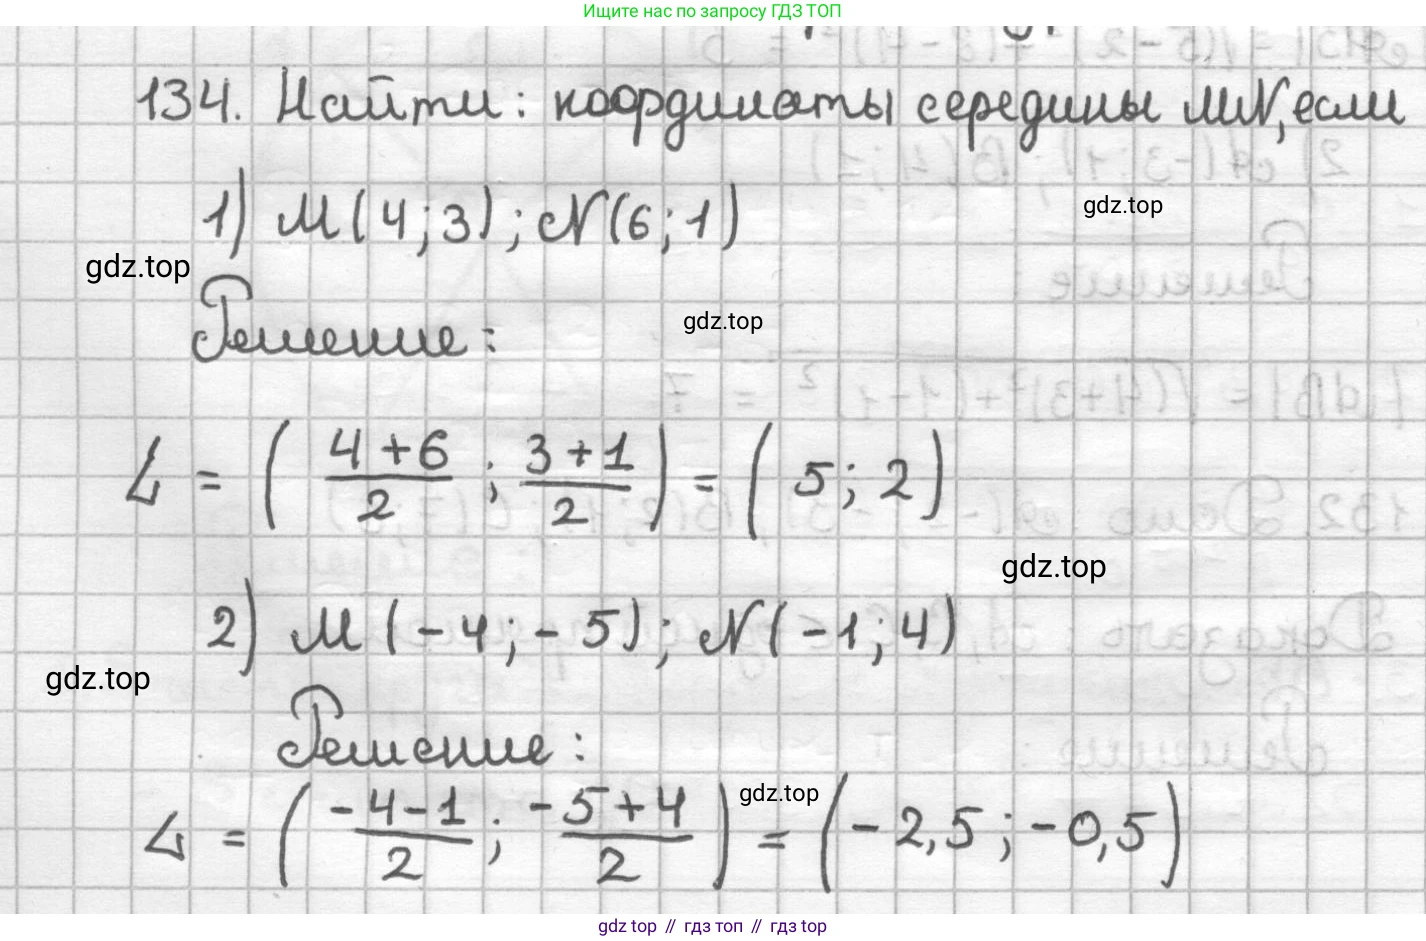 Ищите нас по запросу ГДЗ ТОП
134. Найти: координаты середины MN, если
1) M(4;3); N(6;1)
gdz.top
gdz.top
Решение:
gdz.top
L = ( (4+6)/2 ; (3+1)/2 ) = (5;2)
gdz.top
2) M(-4;-5); N(-1;4)
gdz.top
Решение:
gdz.top
L = ( (-4-1)/2 ; (-5+4)/2 ) = (-2,5;-0,5)
gdz top // гдз топ // gdz top